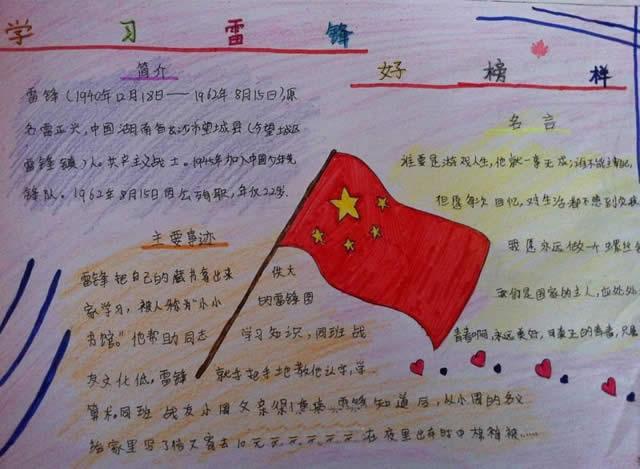 学习雷锋
好榜样
简介
雷锋(1940年12月18日——1962年8月15日)原
名雷正兴,中国湖南省长沙市望城县(今望城区
雷锋镇)人。共产主义战士。1945年加入中国少年先
锋队。1962年8月15日因公殉职,年仅22岁.
名言
谁要是游戏人生,他就一事无成;谁不能主
但愿每次回忆,对生活都不感到负疚
我愿永远做一个螺丝
我们是国家的主人,应处处
青春啊,永远美好,可真正的青春,只
主要事迹
雷锋把自己的藏书拿出来 供大
家学习,被人称为"小小 的雷锋图
书馆。"他帮助同志 学习知识,同班战
友文化低,雷锋 就手把手地教他认字,学
算术.同班战友小周父亲得 雷锋知道后,以小周的名义
给家里写了信又寄去10元 在夜里出车时中棉裤被……